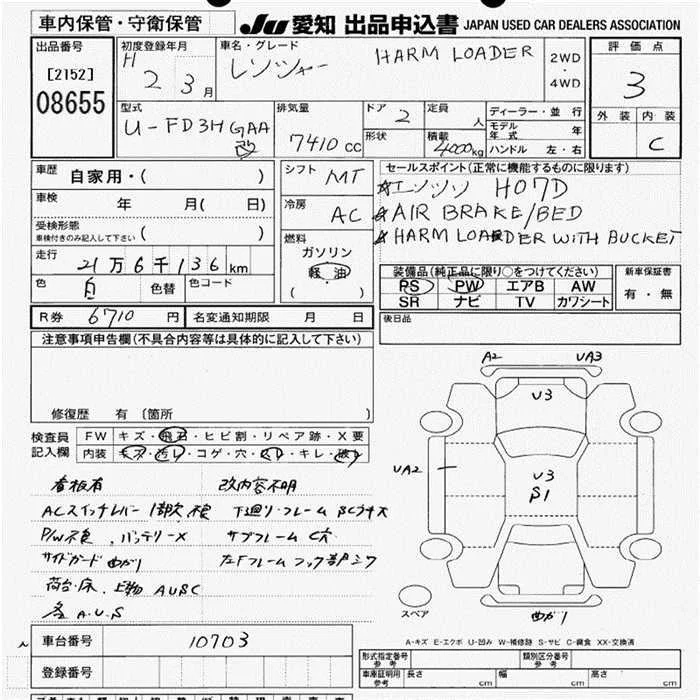 車内保管・守衛保管
JU 愛知 出品申込書 JAPAN USED CAR DEALERS ASSOCIATION
出品番号
[2152]
08655
初度登録年月
H 2 3月
車名・グレード
レンジャー HARM LOADER
2WD
・
4WD
評価点
3
外装 内装
C
型式
U-FD3HGAA
改
排気量
7410 cc
ドア 2
形状
定員 人
積載 4000kg
ディーラー・並行
モデル年式 年
ハンドル 左・右
車歴
自家用・( )
車検
年 月( 日)
受検形態
車検付きのみ記入して下さい ( )
走行
21万6千136km
色 白 色替 色コード
シフト MT
冷房 AC
燃料
ガソリン
軽油
( )
セールスポイント(正常に機能するものに限ります)
☆エンジン H07D
☆AIR BRAKE/BED
☆HARM LOADER WITH BUCKET
装備品(純正品に限り○をつけてください)
PS PW エアB AW
SR ナビ TV カワシート
新車保証書
有・無
R券 6710 円 名変通知期限 月 日
後日品
注意事項申告欄(不具合内容等は具体的に記入して下さい)
修復歴 有 〔箇所 〕
検査員
記入欄
FW キズ・飛石・ヒビ割・リペア跡・X要
内装 キズ・汚レ・コゲ・穴・・キレ・破レ
看板有 改内容不明
ACスイッチレバー
P/W不良、バッテリーX サブフレーム C穴
サイドガード曲がり
荷台・床、上物 AUSC
各A.U.S
A2 UA3
U3
UA2
U3
S1
スペア
曲がり
A-キズ E-エクボ U-凹み W-補修跡 S-サビ C-腐食 XX-交換済
車台番号 10703
登録番号
形式指定番号
参考
類別区分番号
参考
車庫証明用
参考
長さ cm 幅 cm 高さ cm